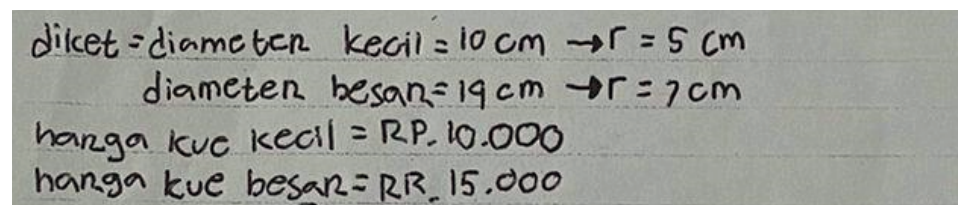 diket = diameter kecil = 10 cm → r = 5 cm
diameter besar = 14 cm → r = 7 cm
harga kue kecil = RP. 10.000
harga kue besar = RR. 15.000